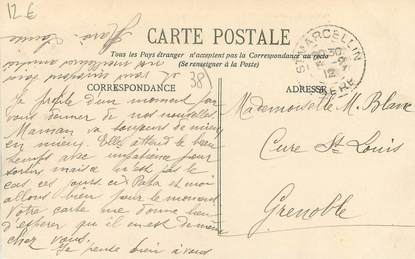 12 €
CARTE POSTALE
Tous les Pays étranger n'acceptent pas la Correspondance au recto
(Se renseigner à la Poste)
Marie Louise
nos meilleures amitiés
et vous envoyons tous
38
CORRESPONDANCE
ADRESSE
St MARCELLIN
ISÈRE
Je profite d'un moment pour
vous donner de nos nouvelles
Maman va toujours de mieux
en mieux. Elle attend le beau
temps avec impatience pour
sortir mais ce n'est pas le
cas ces jours ci Papa et moi
allons bien pour le moment
Votre carte me donne lieu
d'espérer qu'il en est de même
chez vous.
Je pense bien à vous
Mademoiselle M. Blanc
Cure St Louis
Grenoble